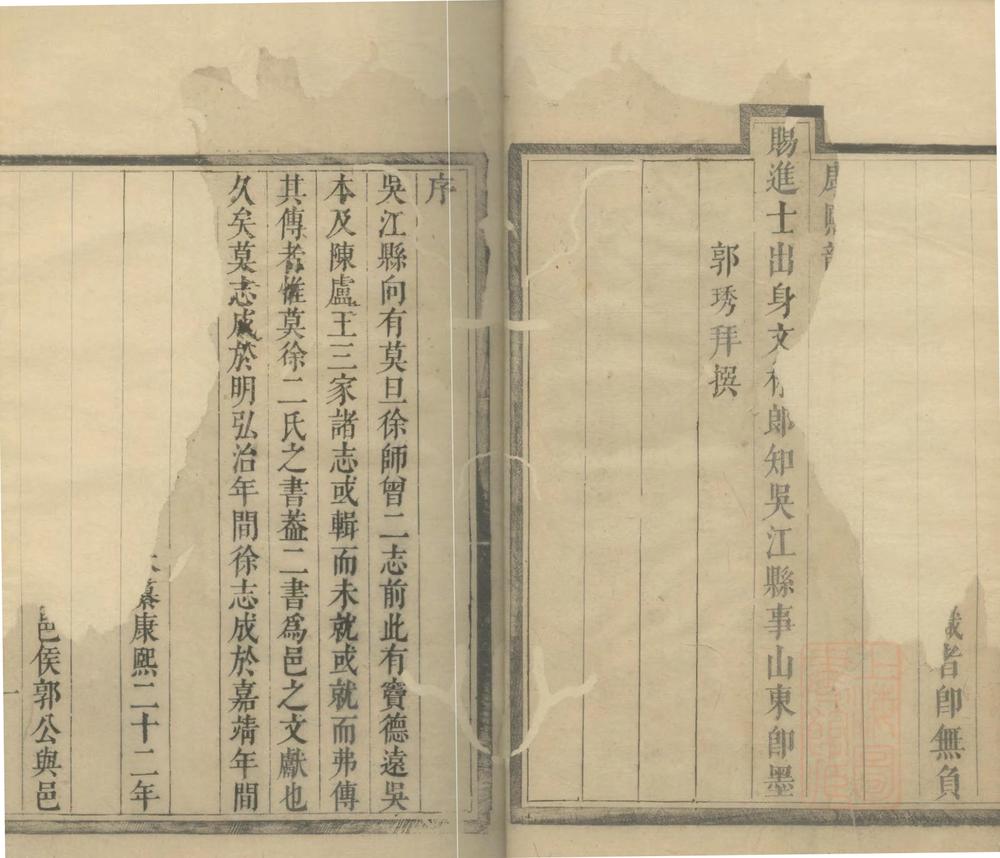 識者卽無負
康熙
賜進士出身文林郎知吳江縣事山東卽墨
郭琇拜撰
序
吳江縣向有莫旦徐師曾二志前此有竇德遠吳
本及陳盧王三家諸志或輯而未就或就而弗傳
其傳者惟莫徐二氏之書葢二書爲邑之文獻也
久矣莫志成於明弘治年間徐志成於嘉靖年間
纂康熙二十二年
邑侯郭公與邑
一